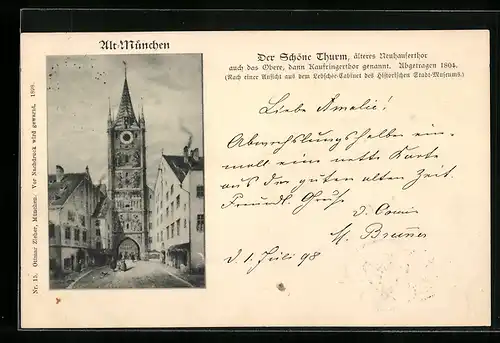 Alt-München
Der Schöne Thurm, älteres Neuhauserthor
auch das Obere, dann Kaufringerthor genannt. Abgetragen 1804.
(Nach einer Ansicht aus dem Lebschée-Cabinet des Historischen Stadt-Museums.)
Liebe Amalie!
Abwechslungshalber ein-
mal eine nette Karte
aus der guten alten Zeit.
Freundl. Gruß
d. Cousin
M.
d. 1. Juli 98
Nr. 15. Ottmar Zieher, München. Vor Nachdruck wird gewarnt. 1898.